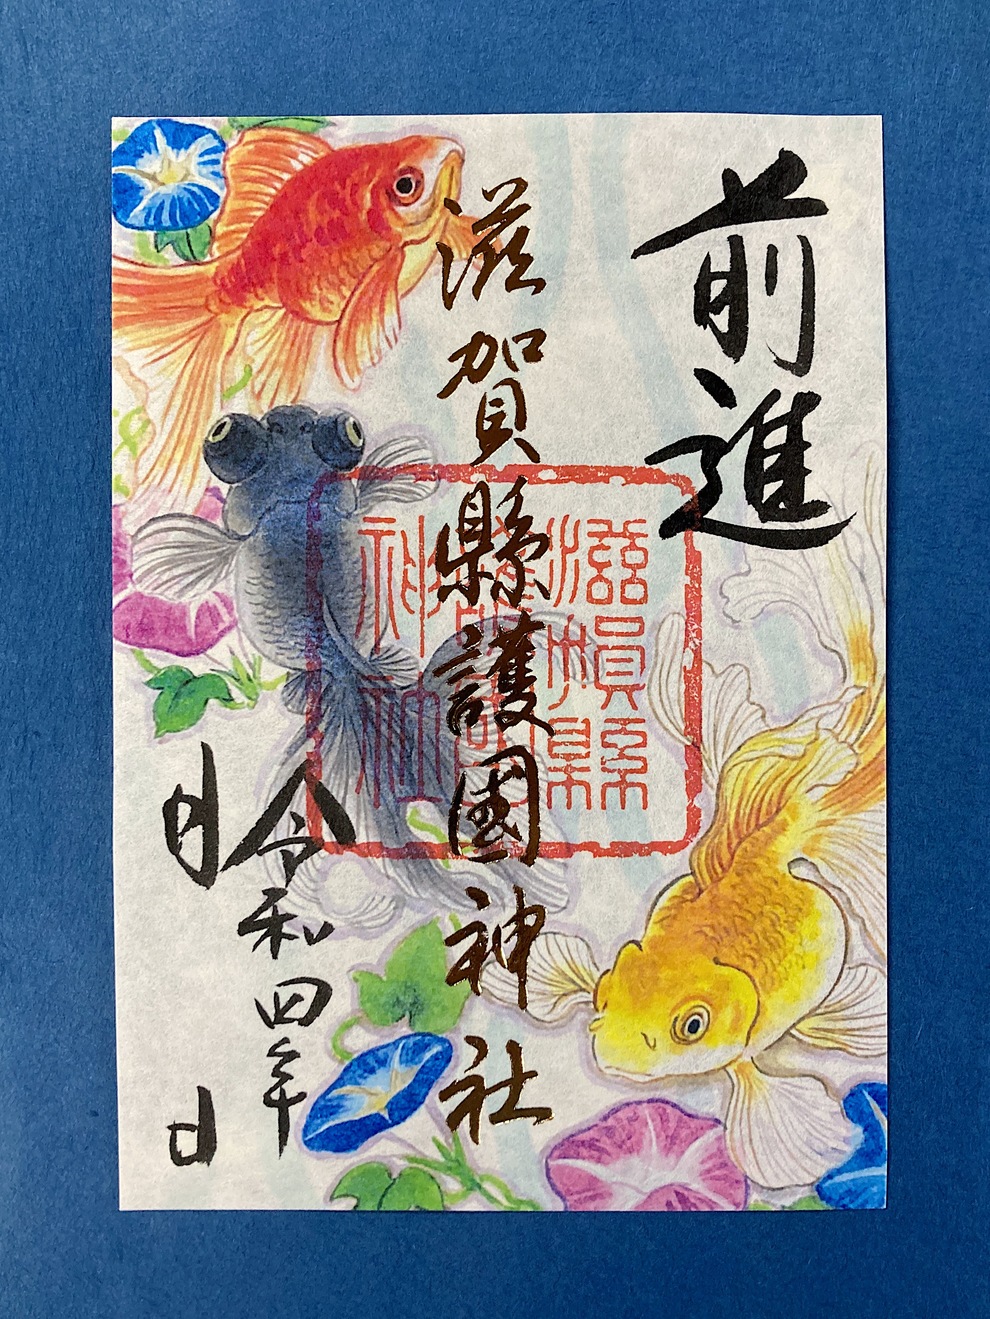 前進
滋賀縣護國神社
滋賀縣
護國
神社
令和四年
月 日